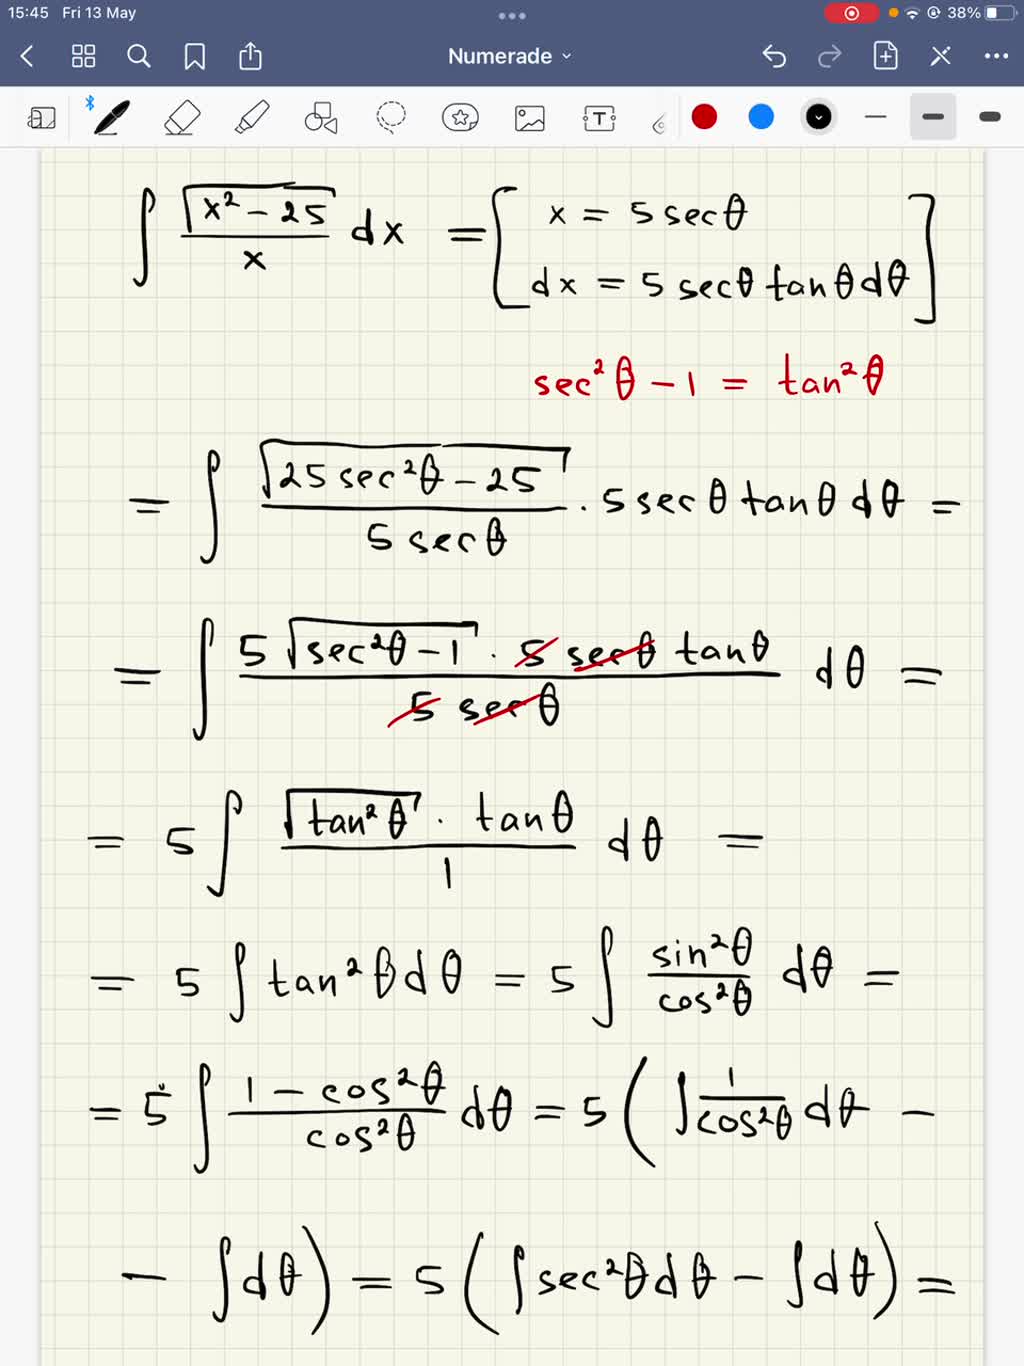 15:45 Fri 13 May 38%
Numerade
∫ √(x² − 25) / x dx = [ x = 5 secθ
dx = 5 secθ tanθ dθ ]
sec²θ − 1 = tan²θ
= ∫ √(25 sec²θ − 25) / 5 secθ · 5 secθ tanθ dθ =
= ∫ 5 √(sec²θ − 1) · 5 secθ tanθ / 5 secθ dθ =
= 5 ∫ √(tan²θ) · tanθ / 1 dθ =
= 5 ∫ tan²θ dθ = 5 ∫ sin²θ / cos²θ dθ =
= 5 ∫ 1 − cos²θ / cos²θ dθ = 5 ( ∫ 1 / cos²θ dθ −
− ∫ dθ ) = 5 ( ∫ sec²θ dθ − ∫ dθ ) =